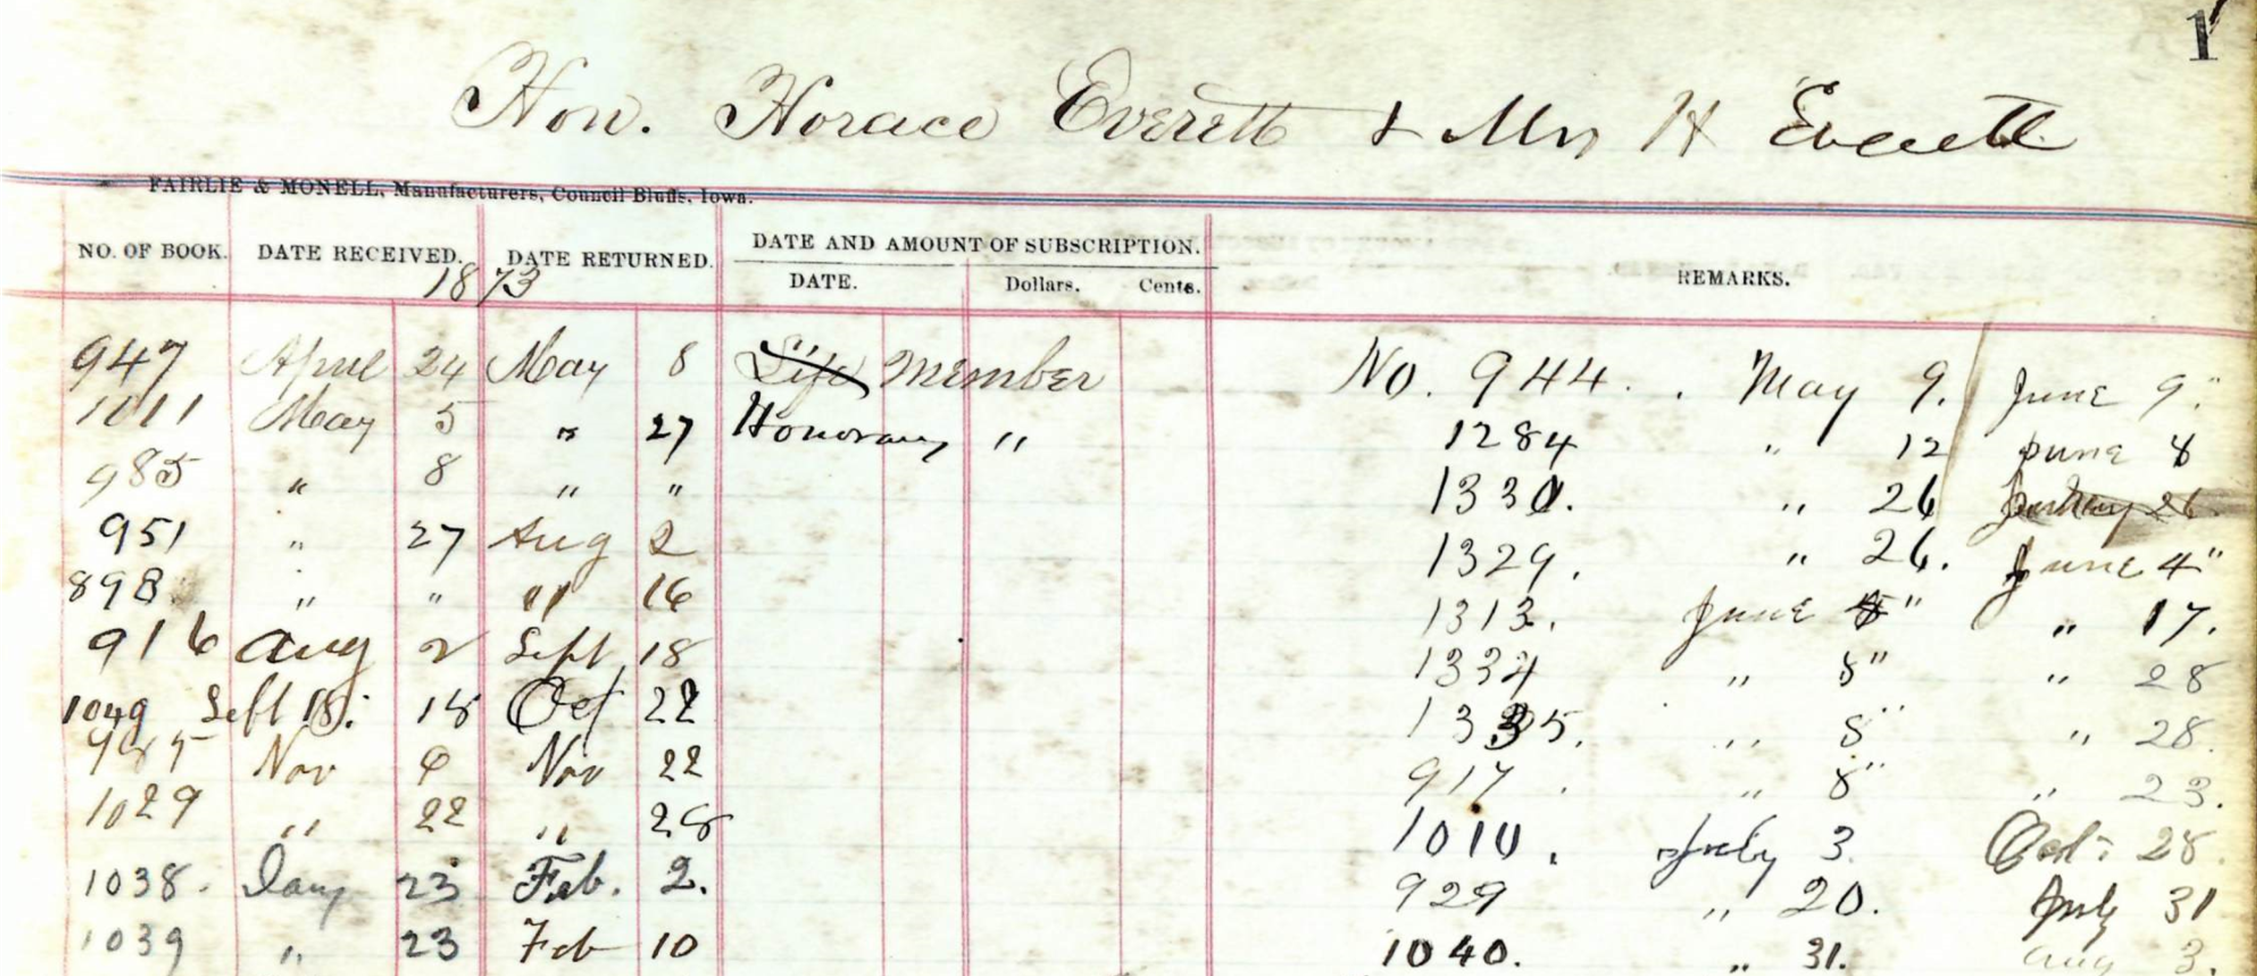 1
Hon. Horace Everett & Mrs H Everett
FAIRLIE & MONELL, Manufacturers, Council Bluffs, Iowa.
NO. OF BOOK. DATE RECEIVED. DATE RETURNED. DATE AND AMOUNT OF SUBSCRIPTION. REMARKS.
1873 DATE. Dollars. Cents.
947 April 24 May 8 Life Member No. 944. . May 9. June 9"
1011 May 5 " 27 Honorary " 1284 " 12 June 8
985 " 8 " " 1330. " 26
951 " 27 Aug 2 1329. " 26. June 4"
898 " " " 16 1313. June " " 17.
916 Aug 2 Sept 18 1334 " 8" " 28
1049 Sept 18. 18 Oct 22 1335. " 8" " 28.
Nov 6 Nov 22 917. " 8" " 23.
1029 " 22 " 28 1010. July 3 Oct. 28.
1038. Jany 23 Feb. 2. 929 " 20. July 31
1039 " 23 Feb 10 1040. " 31. Aug 3.